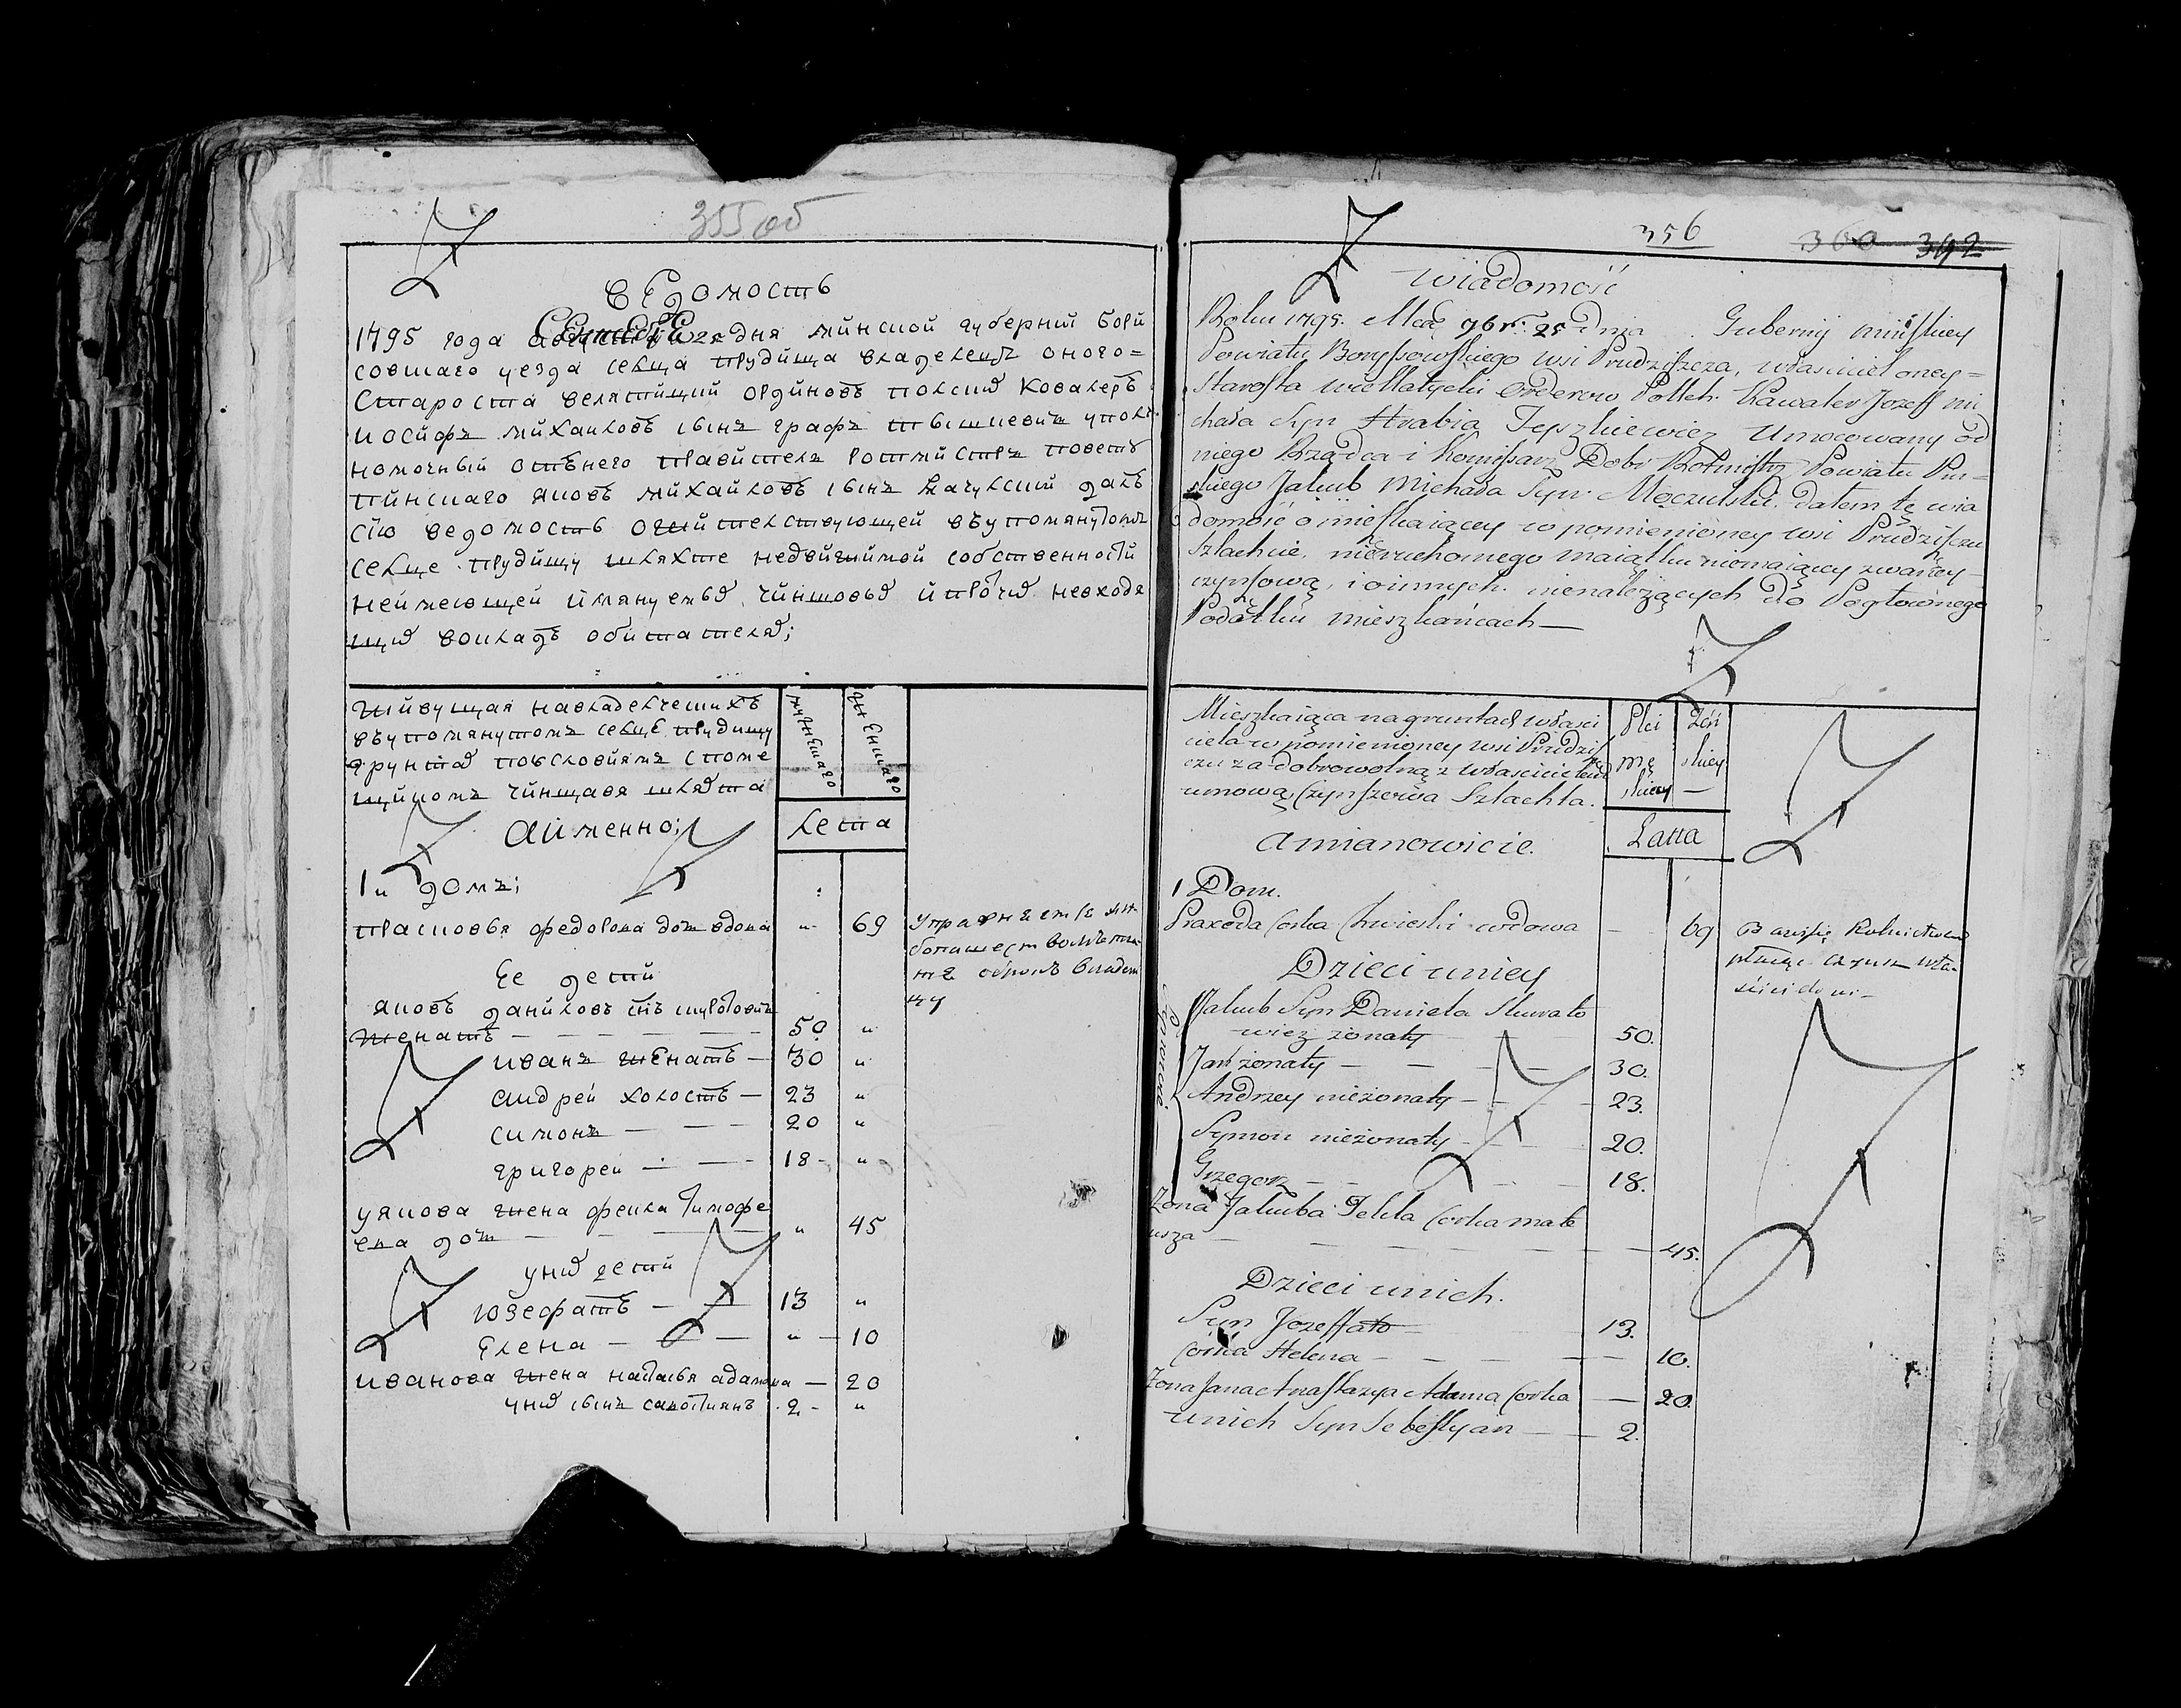 355 об
ведомость
1795 года Сентебре 25 дня минской губерний бори
совшаго уезда сельца прудища владелецъ оного=
Староста велятицкий ординовъ полских Ковалеръ
иосифъ михаиловъ сынъ графъ тышкевичъ упол
номочный отъ него правителъ ротмистръ повету
пинскаго яковъ михайловъ сынъ мачулский далъ
сию ведомость о жителствующей въ упомянутомъ
селце прудищу шляхте недвижимой собственности
неймеющей имянуемых чиншовых и протчих невходя
щих вокладъ обитателях;
живущая навладелческихъ
въ упомянутомъ селце прудищу
грунтах поусловиямъ споме
щикомъ чиншавя шляхта
аименно;
мужескаго
женскаго
Лета
1й домъ;
прасковья федорова доч вдова " 69
Упражняется хле-
бопашеством
оброкъ владел
цу
Ее дети
яковъ даниловъ снъ шкуратовичъ
женатъ — 50 "
иванъ женатъ — 30 "
андрей холостъ — 23 "
симонъ — 20 "
григорей — 18 "
у якова жена фекла тимофе
ева доч — " 45
у них дети
юзефатъ — 13 "
Елена — " 10
иванова жена настасья адамова — 20
у них сынъ савостиянъ 2 "
356 360 342
Wiadomość
Roku 1795. Mcą 7br: 25 Dnia Gubernij minſkiey
Powiatu Boryſsowſkiego wsi Prudziſzcza, właściciel oney=
Staroſta wiellatycki Orderow Polſkch. Kawaler Jozeff mi
chała Syn Hrabia Tyszkiewicz Umocowany od
niego Rządca i Komiſsarz Dobr Rotmistrz Powiatu Piń-
skiego Jakub Michała Syn Maczulski. dałem tę wia
domość o mieſzkaiącey w pomienioney wsi Prudziſzczu
Szlachcie, nieruchomego maiątku niemaiącey zwaney
czynſową, i oinnych nienależących do Pogłownego
Podatku mieszkańcach—
Mieszkaiąca na gruntach właści
ciela w pomienioney wsi Prudziſz
czu za dobrowolną z właścicielem
umową Czynſzowa Szlachta.
Płci
mę
skiey
Żeń
skiey
—
Latta
amianowicie.
1 Dom.
Praxeda Corka Chwiedki wdowa — 69
Bawiſię Rolnictwem
płacąc czynsz wła-
ścicielowi-
Dzieci uniey
Synowie
Jakub Syn Daniela Skurato
wicz żonaty — 50.
Jan żonaty — 30.
Andrzey nieżonaty — 23.
Symon nieżonaty — 20.
Grzegorz — 18.
Żona Jakuba Tekla Corka mate
usza — 45.
Dzieci unich.
Syn Jozeffato — 13.
Córka Helena — 10.
Żona Jana Anaſtazya Adama Corka — 20.
unich Syn Sebeſtyan — 2.